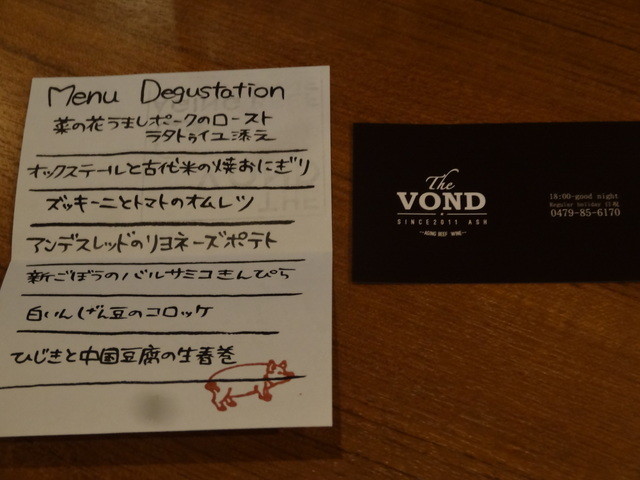 Menu Degustation
菜の花うましポークのロースト
ラタトゥイユ添え
オックステールと古代米の焼おにぎり
ズッキーニとトマトのオムレツ
アンデスレッドのリヨネーズポテト
新ごぼうのバルサミコきんぴら
白いんげん豆のコロッケ
ひじきと中国豆腐の生春巻
The
VOND
SINCE2011 ASH
AGING BEEF WINE
18:00-good night
Regular holiday 日祝
0479-85-6170